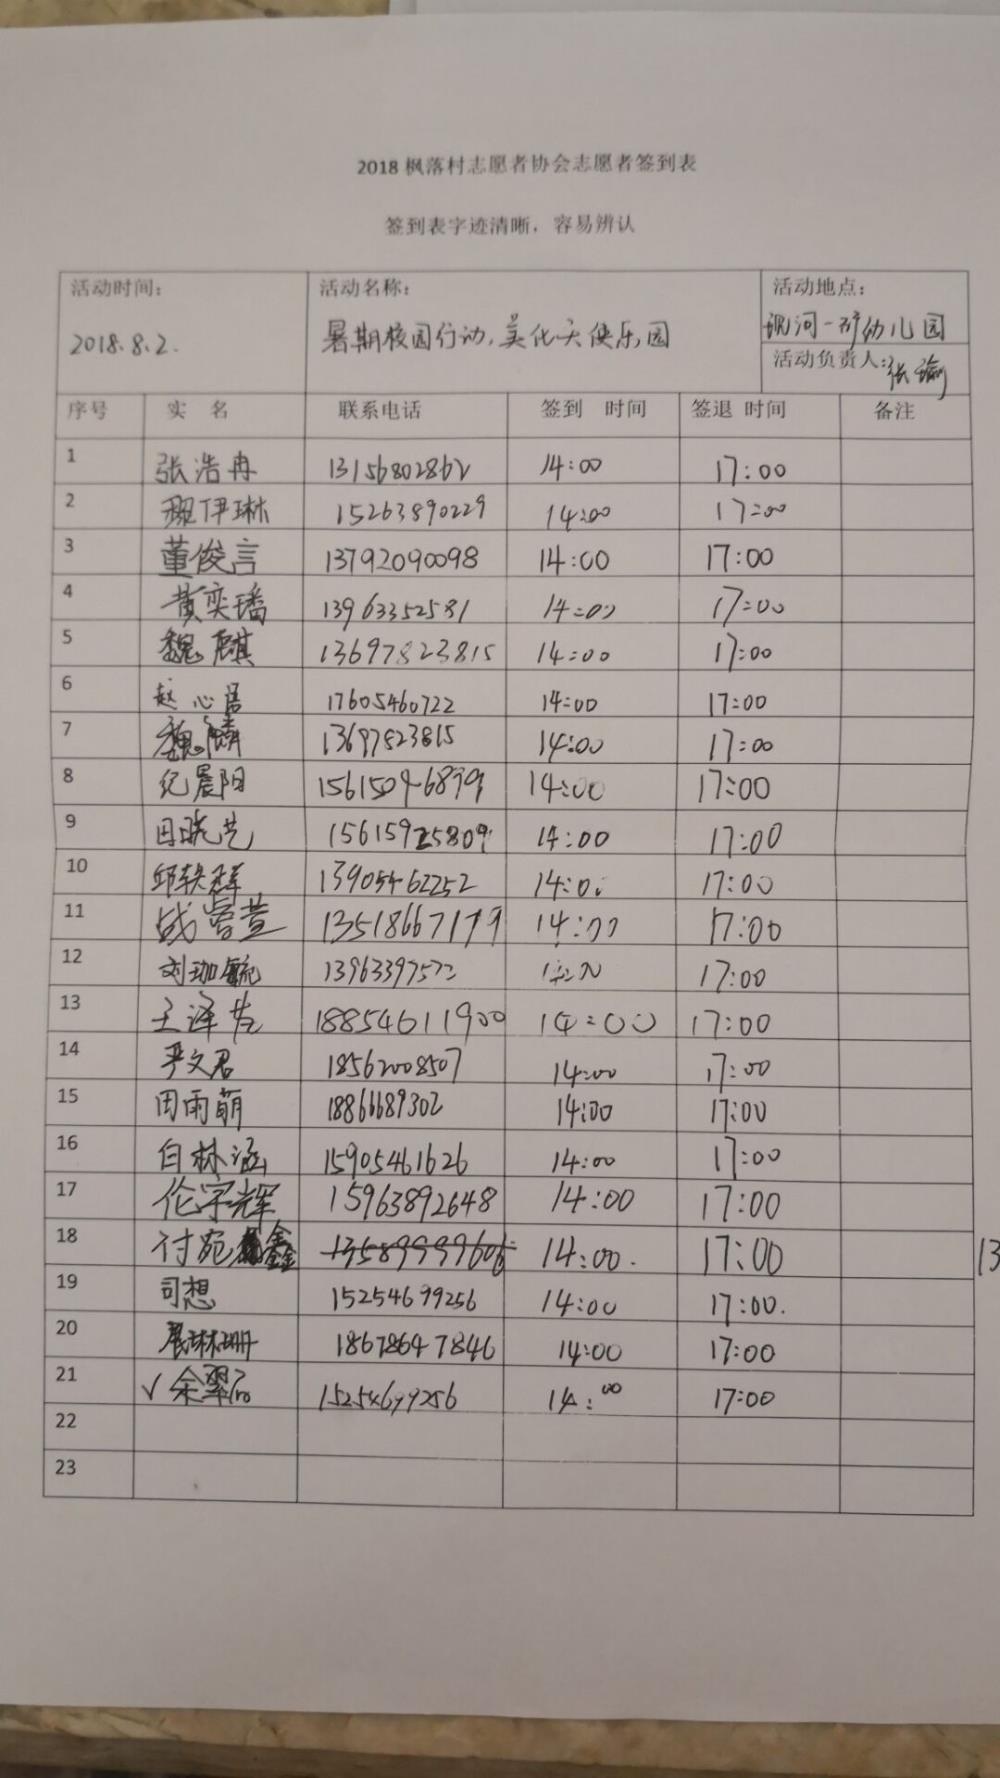 2018 枫落村志愿者协会志愿者签到表
签到表字迹清晰，容易辨认
活动时间： 活动名称： 活动地点：
2018.8.2. 暑期校园行动，美化天使乐园 现河一矿幼儿园
活动负责人：张瑜
序号 实 名 联系电话 签到 时间 签退 时间 备注
1 张浩冉 13156802862 14:00 17:00
2 伊琳 15263890229 14:00 17:00
3 董俊言 13792090098 14:00 17:00
4 黄奕璠 13963352581 14:00 17:00
5 魏麒 13697823815 14:00 17:00
6 赵心 17605460722 14:00 17:00
7 魏麟 13697823815 14:00 17:00
8 纪晨阳 14:00 17:00
9 田晓艺 15615925809 14:00 17:00
10 邱轶群 13905462252 14:00 17:00
11 战睿萱 14:00 17:00
12 刘珈毓 13963397572 17:00
13 王泽 18854611900 14:00 17:00
14 严文君 18562008507 14:00 17:00
15 田雨萌 1886689302 14:00 17:00
16 白林涵 15905461626 14:00 17:00
17 伦宇辉 15963892648 14:00 17:00
18 付宛鑫 14:00. 17:00 13
19 司想 15254699256 14:00 17:00.
20 琳珊 18678647846 14:00 17:00
21 √ 余 15254699256 14:00 17:00
22
23